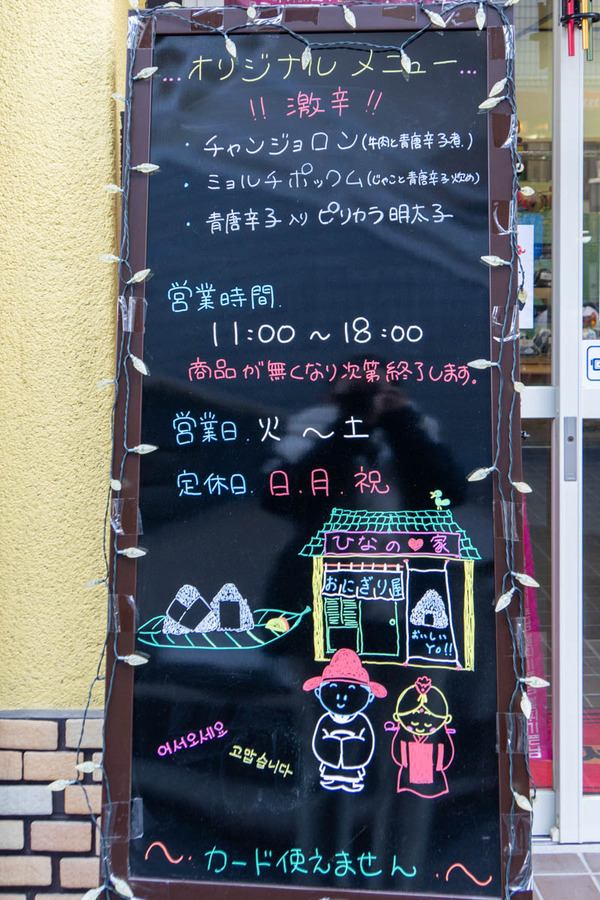 ...オリジナル メニュー...
!! 激辛 !!
・チャンジョロン(牛肉と青唐辛子煮.)
・ミョルチポックム(じゃこと青唐辛子炒め)
・青唐辛子入りピリカラ明太子
営業時間.
11:00 ~ 18:00
商品が無くなり次第終了します。
営業日. 火 ～ 土
定休日. 日. 月. 祝
ひなの♥家
おにぎり屋
おいしい
YO!!
어서오세요
고맙습니다
~・カード使えません・~